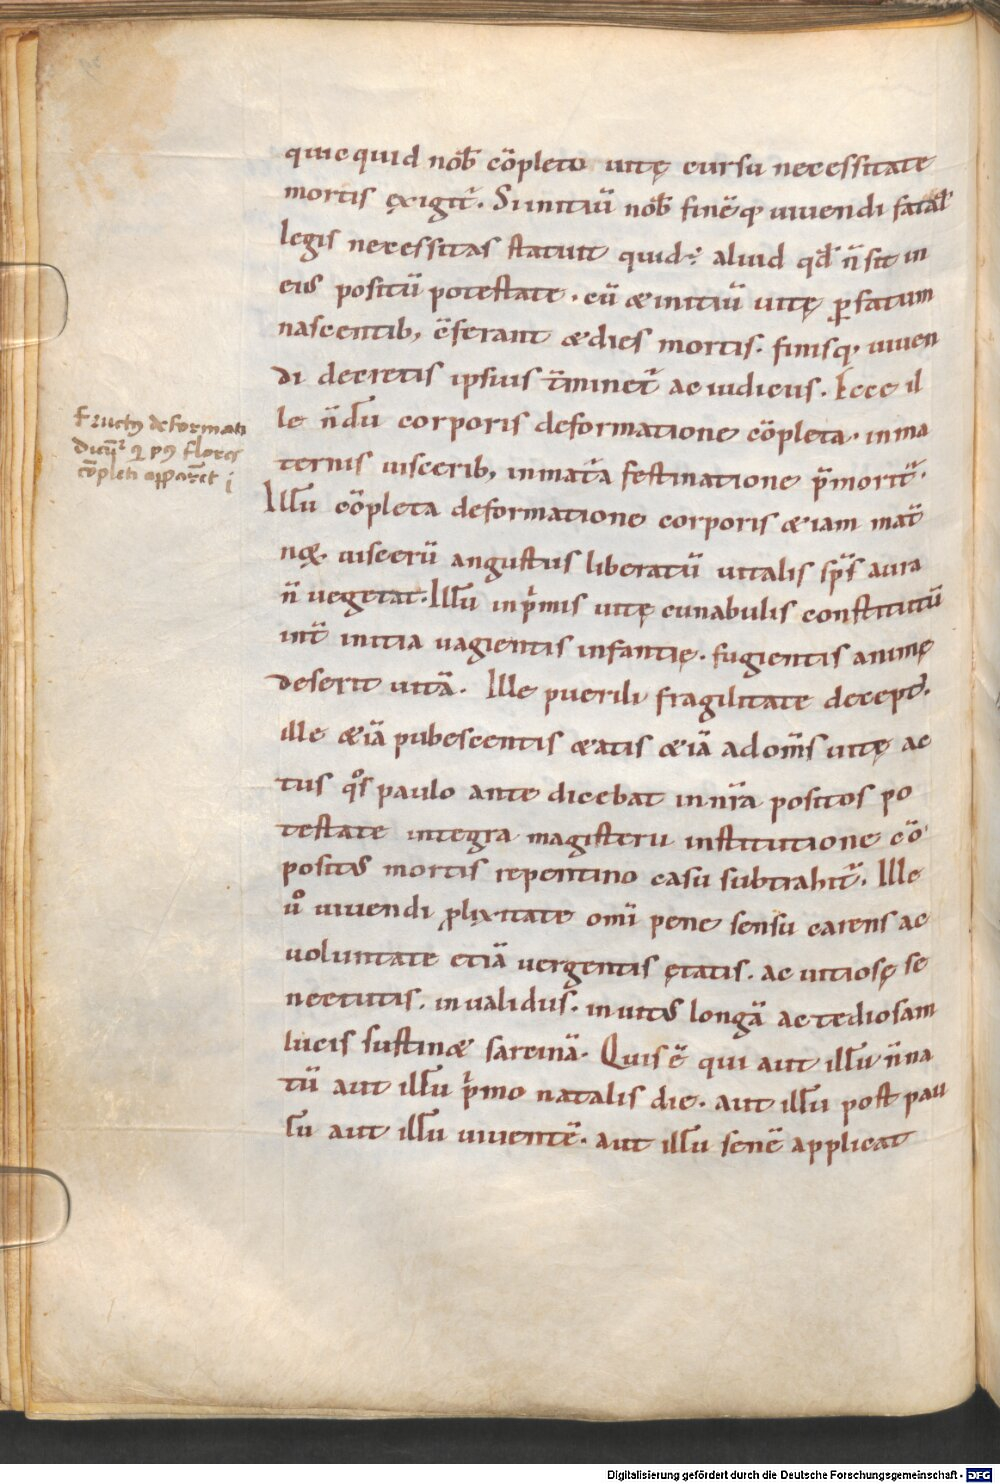 quicquid nob̄ cōpleto uitę cursu necessitate
mortis ęxigit̄. Si initiū nob̄ finēq; uiuendi fatal̄
legis necessitas statuit quid; aliud qd̄ n̄ sit in
eius positū potestate. cū & initiū uitę ꝑ fatum
nascentib; c̄ferant & dies mortis. finisq; uiuen
di decretis ipsius t̄minet̄ ac iudicius. Ecce il
le n̄dū corporis deformatione cōpleta. in ma
ternis uiscerib; in mat̄a festinatione p̄morit̄.
Illū cōpleta deformatione corporis & iam mat̄
n& uiscerū angustiis liberatū uitalis sp̄s aura
n̄ uegetat. Illū in p̄mis uitę cunabulis constitutū
int̄ initia uagientis infantię. fugientis animę
deserit uitā. Ille puerili fragilitate decept̄.
ille & iā pubescentis &atis & iā ad om̄s uitę ac
tus q̊s paulo ante dicebat in nr̄a positos po
testate integra magisterii institutione cō
positus mortis repentino casu subtrahit̄. Ille
ů uiuendi ꝓlixitate omī pene sensu carens ac
uoluntate etiā uergentis ętatis. ac uitiosę se
nectutis. inualidus. inuitus longā ac tediosam
lucis sustin& sarcinā. Quis ē qui aut illū n̄ na
tū aut illū p̄mo natalis die. aut illū post pau
lū aut illū uiuentē. aut illū senē applicat
Fructꝯ deformati
flores
Digitalisierung gefördert durch die Deutsche Forschungsgemeinschaft - DFG